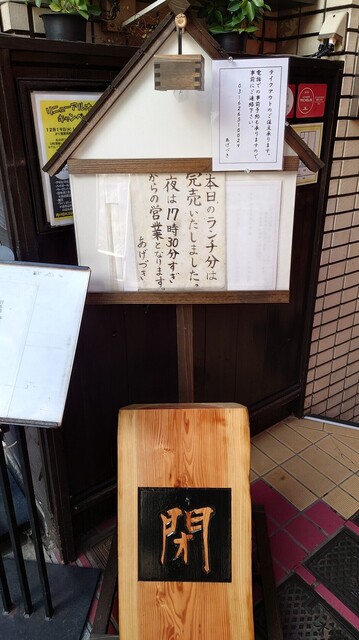 テイクアウトのご注文承ります。
電話での事前予約も承りますので、
事前にご連絡下さい。
あげづき
本日のランチ分は
完売いたしました。
夜は17時30分すぎ
からの営業となります。
あげづき
閉